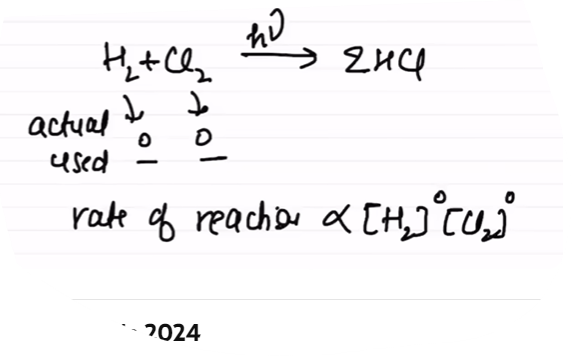 H₂ + Cl₂ hν → 2HCl
↓ ↓
actual
used 0 0
rate of reaction ∝ [H₂]⁰ [Cl₂]⁰
2024